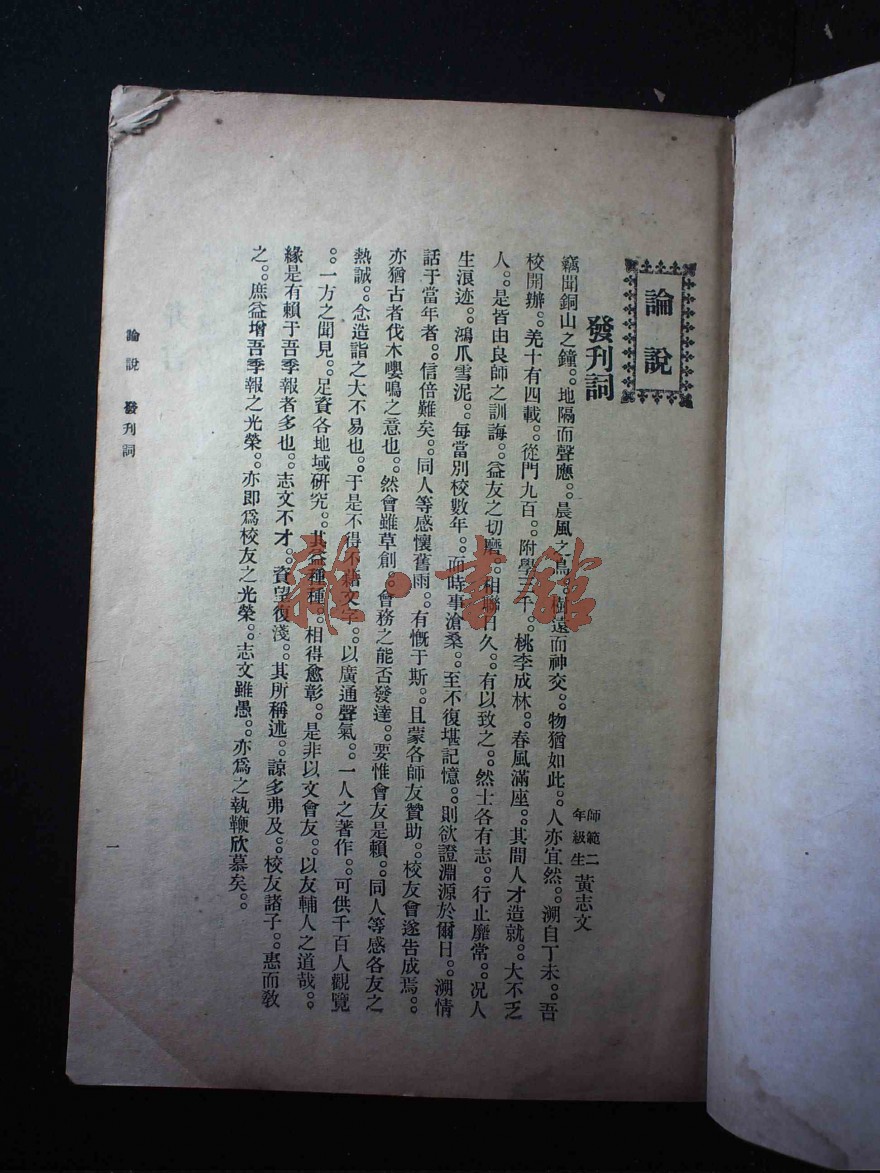 論說
發刊詞
師範二
年級生
黃志文
竊聞銅山之鐘。。地隔而聲應。。晨風之鳥。。樹遠而神交。。物猶如此。。人亦宜然。。溯自丁未。。吾
校開辦。。羌十有四載。。從門九百。。附學三千。。桃李成林。。春風滿座。。其間人才造就。。大不乏
人。。是皆由良師之訓誨。。益友之切磨。。相聯日久。。有以致之。。然士各有志。。行止靡常。。况人
生浪迹。。鴻爪雪泥。。每當別校數年。。而時事滄桑。。至不復堪記憶。。則欲證淵源於爾日。。溯情
話于當年者。。信倍難矣。。同人等感懷舊雨。。有慨于斯。。且蒙各師友贊助。。校友會遂告成焉。。
亦猶古者伐木嚶鳴之意也。。然會雖草創。。會務之能否發達。。要惟會友是賴。。同人等感各友之
熱誠。。念造詣之大不易也。。于是不得不藉文字。。以廣通聲氣。。一人之著作。。可供千百人觀覽
。。一方之聞見。。足資各地域研究。。其益種種。。相得愈彰。。是非以文會友。。以友輔人之道哉。。
緣是有賴于吾季報者多也。。志文不才。。資望復淺。。其所稱述。。諒多弗及。。校友諸子。。惠而敎
之。。庶益增吾季報之光榮。。亦即爲校友之光榮。。志文雖愚。。亦爲之執鞭欣慕矣。。
論說 發刊詞
一
雜·書館